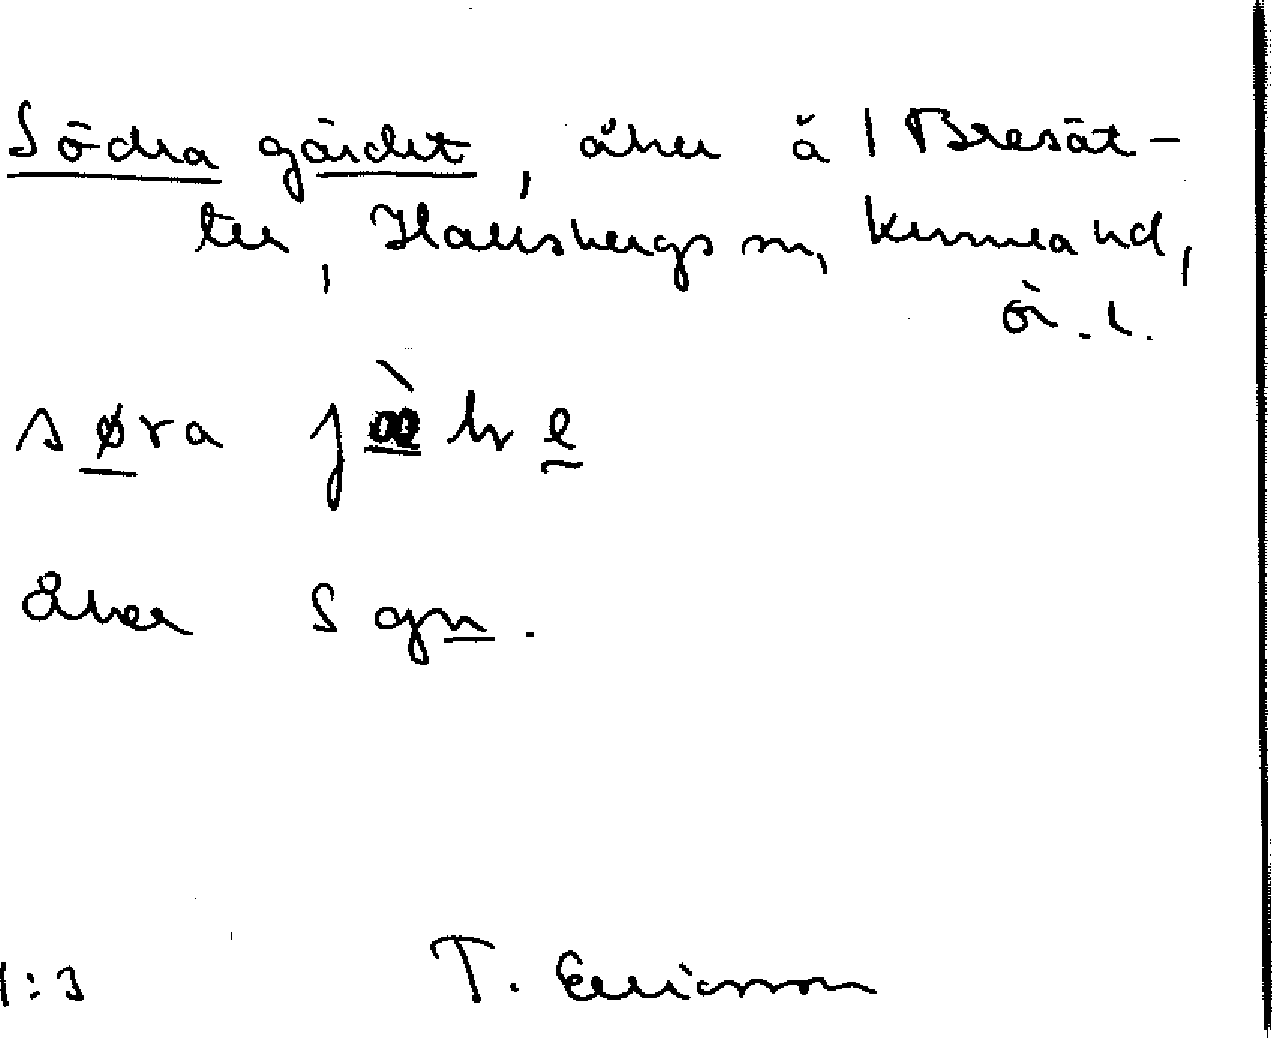 Södra gärdet, åker å 1 Bresät-
ter, Hallsbergs sn, Kumla hd,
ör. l.
søra jæ̀ḷe
Åker S gn.
1:3 T. Ericsson